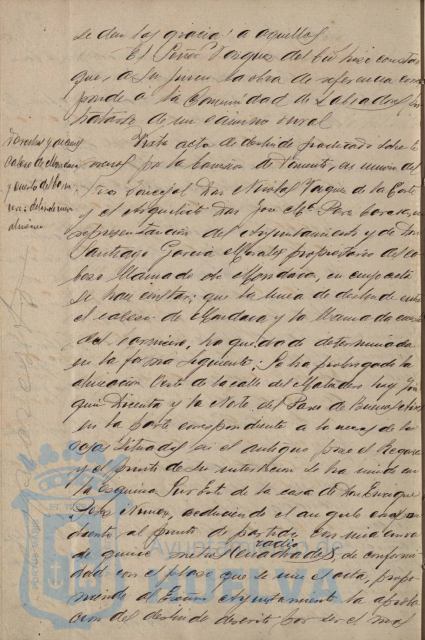 se den las gracias a aquellos
El Señor Vazquez del Cid hizo constar
que, a su juicio la obra de referencia corres
ponde a la Comunidad de Labradores, por
tratarse de un camino rural
Vista acta de deslinde practicado sobre te
rrenos por la Comision de Fomento, en union del
Sor. Concejal Don Nicolas Vazquez de la Corte
y el Arquitecto Don José Mª Perez Carasa, en
representacion del Ayuntamiento y de Don
Santiago Garcia Morales propietario del ca
bezo llamado de Mondaca, en cuya acta
se hace constar; que la linea de deslinde entre
el cabezo de Mondaca y la llamada
del ha quedado determinada
en la forma siguiente: Se ha prolongado la
alineacion Oeste de la calle del Matadero hoy Joa
quin Dicenta y la Norte del Paseo de Buenos Aires
en la parte correspondiente a la acera de las
casas situadas en el antiguo
y el punto de su interseccion se ha unido con
la esquina Sur Este de la casa de Don Enrique
deduciendo el angulo
al punto de partida con una
de quince metros cuadrados, de conformi
dad con el plano que se une al acta, propo
niendo al Excmo Ayuntamiento la aproba
cion del deslinde descrito por ser el mas
Terrenos
Cabezo de Mondaca
y
deslinde